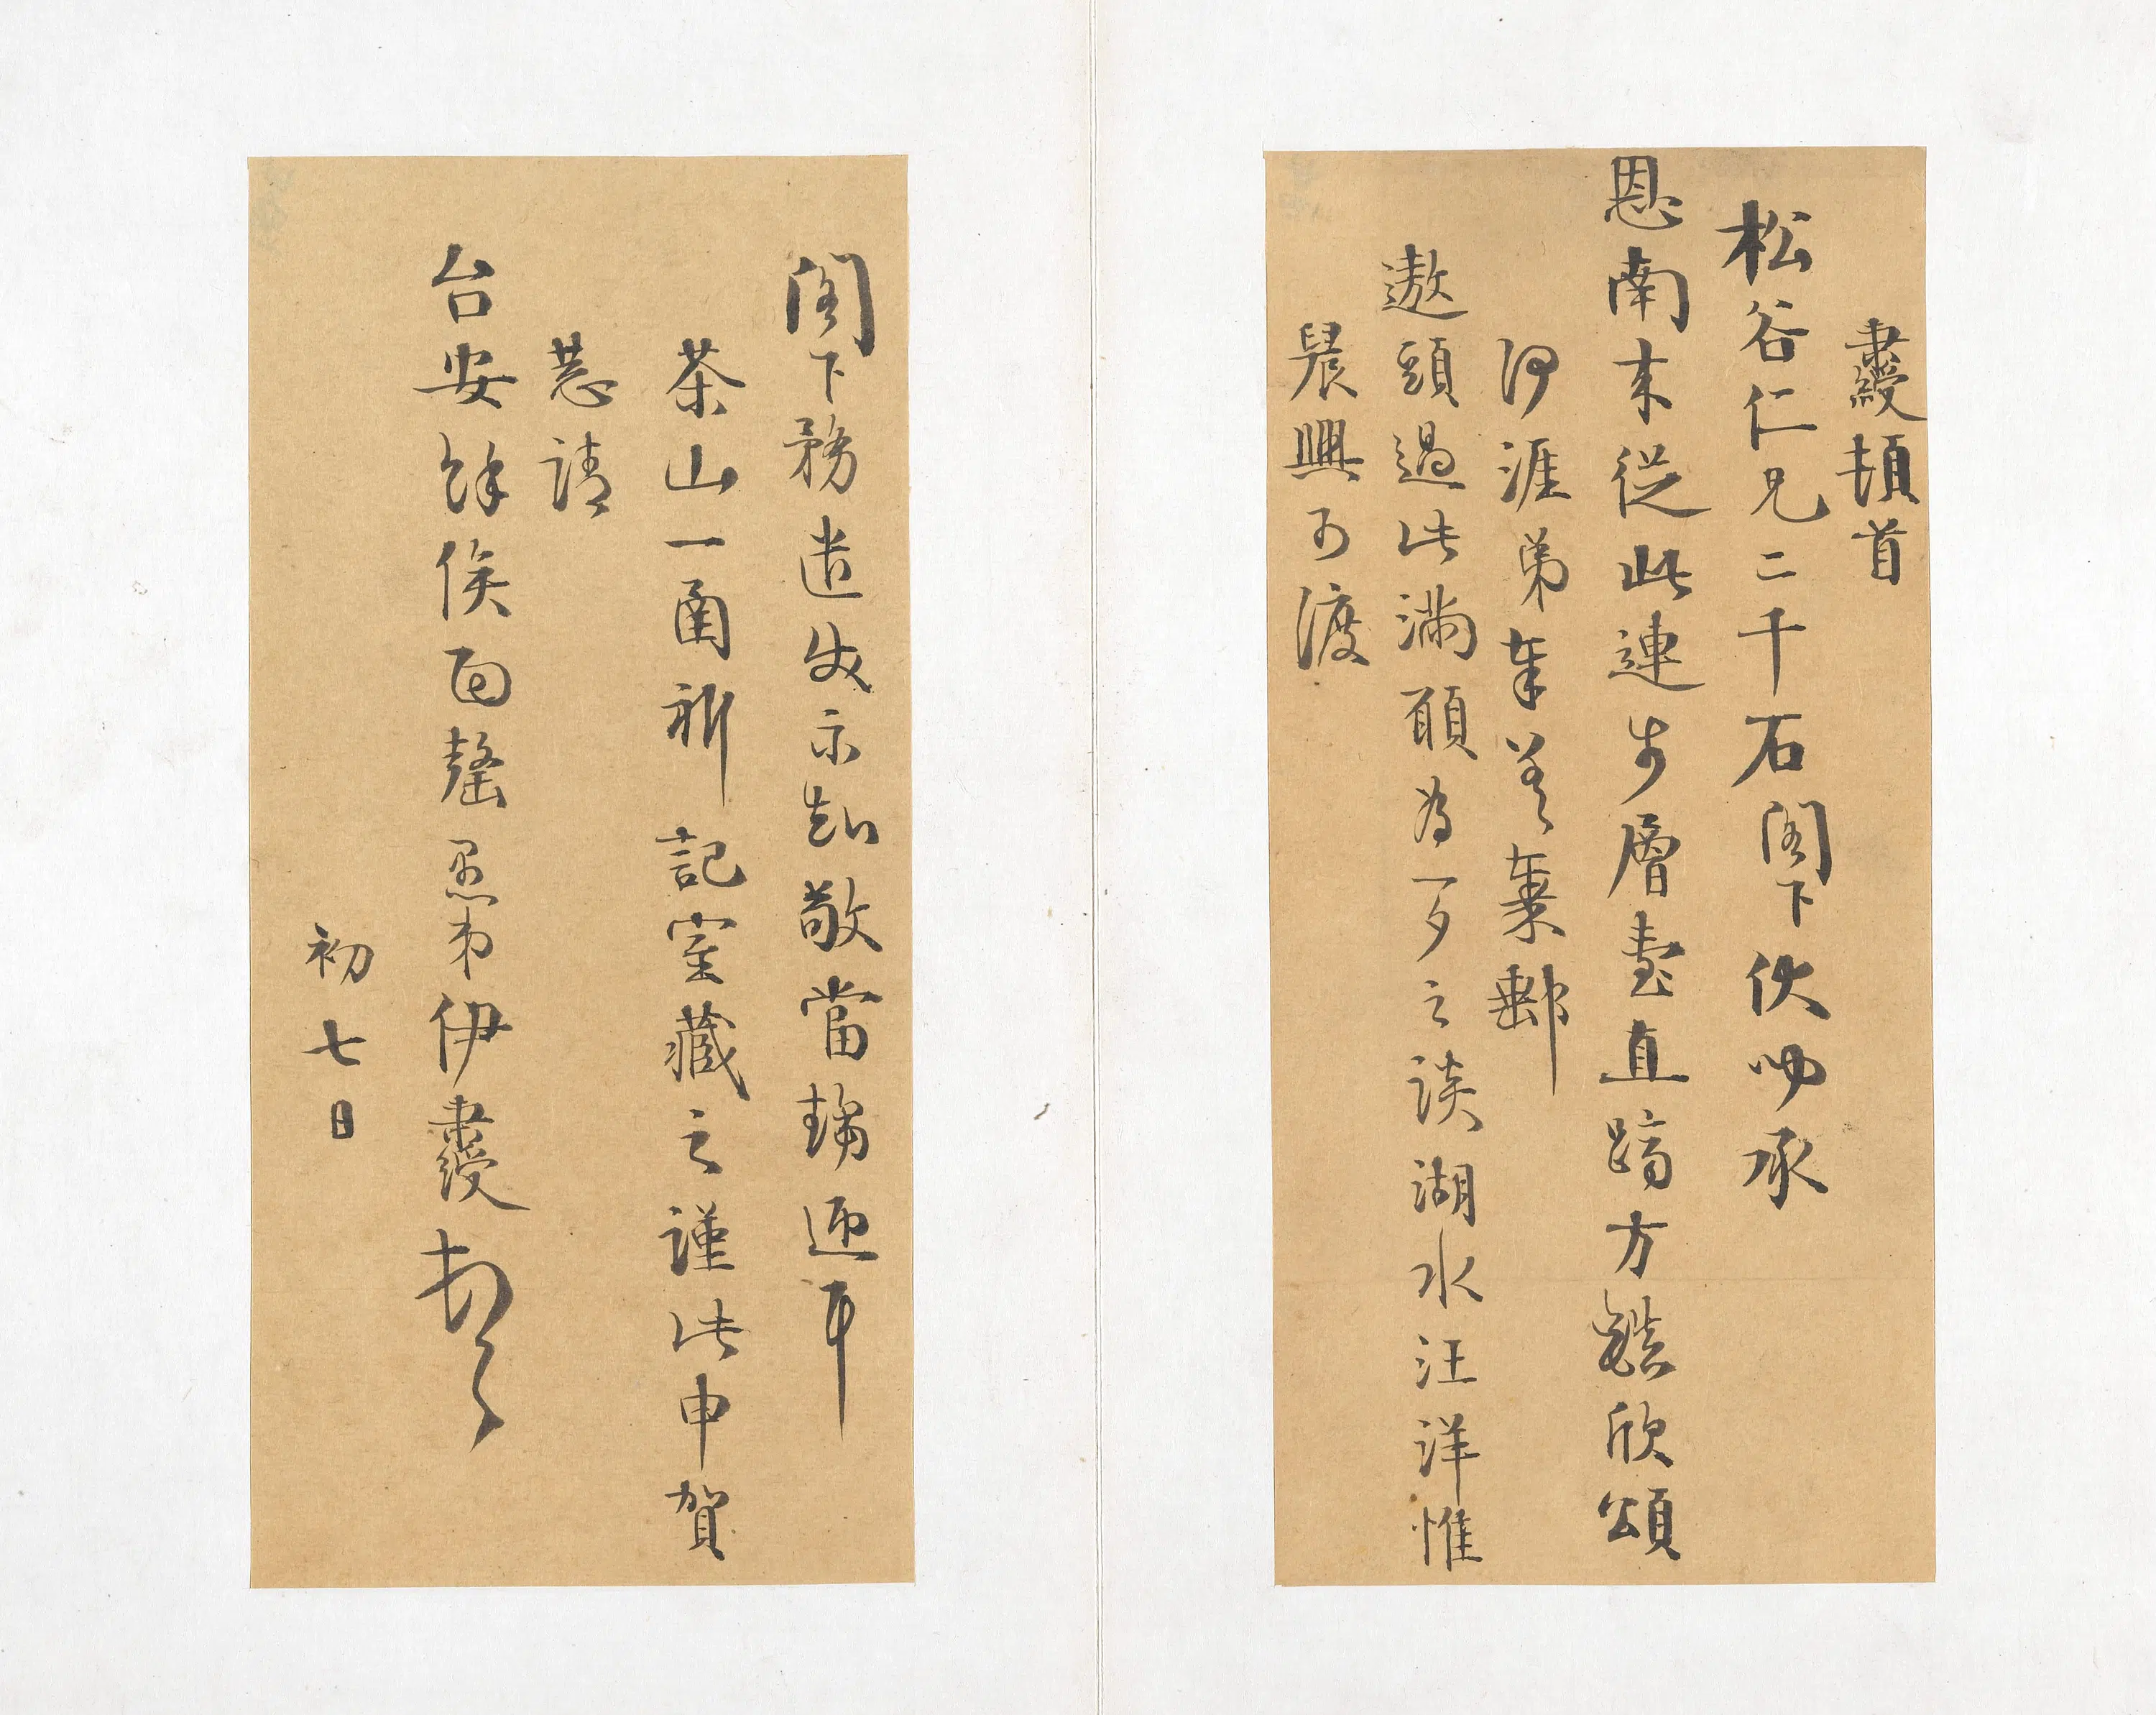 綬頓首
松谷仁兄二千石閣下伏呦承
恩南來從此連步層臺直躋方欣頌
何涯弟奉差棄郵
遨頭過此滿願為一夕之談湖水汪洋惟
晨興可渡
閣下務遣伻示知敬當掃迎耳
茶山一角祈記室藏之謹此申賀
惹請
台安餘俟面罄愚弟伊綬頓首
初七日